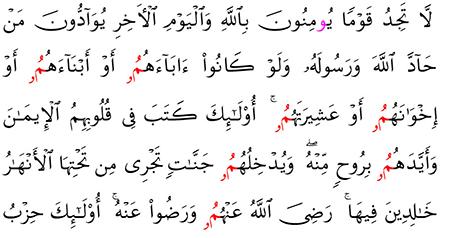 لَّا تَجِدُ قَوْمًا يُومِنُونَ بِٱللَّهِ وَٱلْيَوْمِ ٱلْأَخِرِ يُوَآدُّونَ مَنْ
حَآدَّ ٱللَّهَ وَرَسُولَهُۥ وَلَوْ كَانُوٓا۟ ءَابَآءَهُمُۥٓ أَوْ أَبْنَآءَهُمُۥٓ أَوْ
إِخْوَٰنَهُمُۥٓ أَوْ عَشِيرَتَهُمُۥٓ ۚ أُو۟لَٰٓئِكَ كَتَبَ فِى قُلُوبِهِمُ ٱلْإِيمَٰنَ
وَأَيَّدَهُمُۥ بِرُوحٍ مِّنْهُ ۖ وَيُدْخِلُهُمُۥ جَنَّٰتٍ تَجْرِى مِن تَحْتِهَا ٱلْأَنْهَٰرُ
خَٰلِدِينَ فِيهَا ۚ رَضِىَ ٱللَّهُ عَنْهُمُۥ وَرَضُوا۟ عَنْهُ ۚ أُو۟لَٰٓئِكَ حِزْبُ